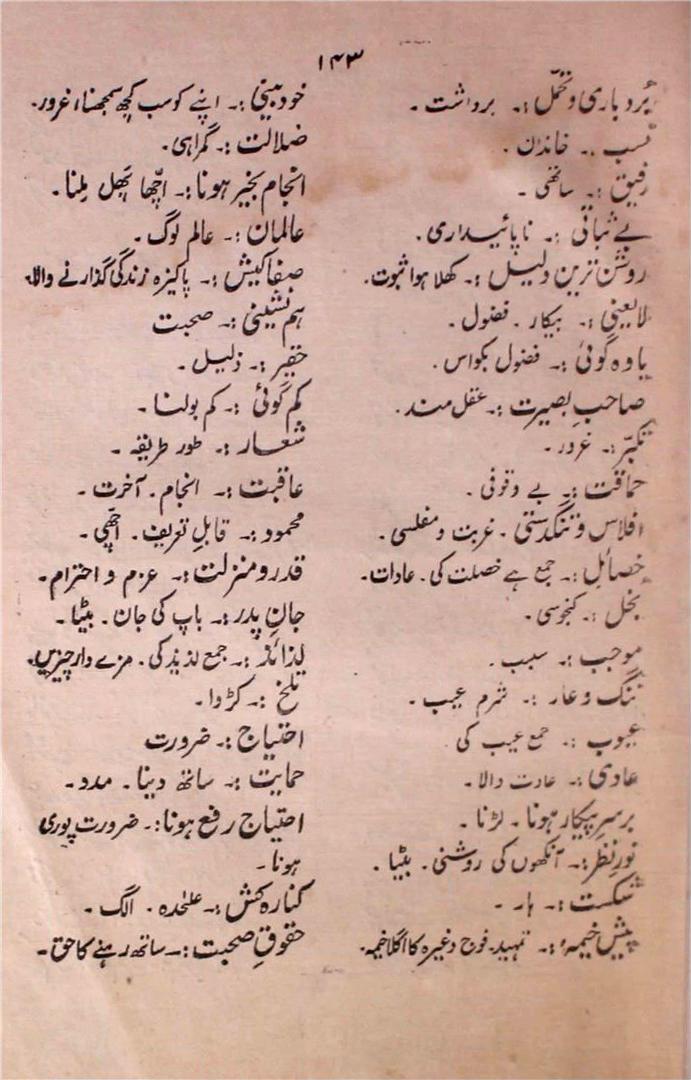 ۱۴۳
بُردباری و تحمّل :۔ برداشت ۔
نسب :۔ خاندان ۔
رفیق :۔ ساتھی ۔
بے ثباتی :۔ ناپائیداری۔
روشن ترین دلیل :۔ کھلا ہوا ثبوت۔
لایعنی :۔ بیکار ۔ فضول ۔
یاوہ گوئی :۔ فضول بکواس۔
صاحبِ بصیرت :۔ عقل مند۔
تکبّر :۔ غرور ۔
حماقت :۔ بے وقوفی ۔
افلاس و تنگدستی ۔ غربت و مفلسی ۔
خصائل :۔ جمع ہے خصلت کی ۔ عادات۔
بخل :۔ کنجوسی ۔
موجب :۔ سبب ۔
ننگ و عار :۔ شرم عیب ۔
عیوب :۔ جمع عیب کی
عادی :۔ عادت والا ۔
برسرِ پیکار ہونا ۔ لڑنا ۔
نورِ نظر :۔ آنکھوں کی روشنی ۔ بیٹا ۔
شکست :۔ ہار ۔
پیش خیمہ :۔ تمہید۔ فوج وغیرہ کا اگلا خیمہ۔
خود بینی :۔ اپنے کو سب کچھ سمجھنا، غرور۔
ضلالت :۔ گمراہی۔
انجام بخیر ہونا :۔ اچّھا پھل مِلنا ۔
عالمان :۔ عالم لوگ ۔
صفا کیش :۔ پاکیزہ زندگی گذارنے والا۔
ہم نشینی :۔ صحبت
حقیر :۔ ذلیل ۔
کم گوئی :۔ کم بولنا ۔
شعار :۔ طور طریقہ ۔
عاقبت :۔ انجام ۔ آخرت ۔
محمود :۔ قابلِ تعریف ۔ اچّھی ۔
قدر و منزلت :۔ عزم و احترام ۔
جانِ پدر :۔ باپ کی جان ۔ بیٹا ۔
لذائذ :۔ جمع لذیذ کی ۔ مزے دار چیزیں۔
تلخ :۔ کڑوا ۔
احتیاج :۔ ضرورت
حمایت :۔ ساتھ دینا ۔ مدد ۔
احتیاج رفع ہونا :۔ ضرورت پوری
ہونا ۔
کنارہ کش :۔ علٰحدہ ۔ الگ ۔
حقوقِ صحبت :۔ ساتھ رہنے کا حق ۔